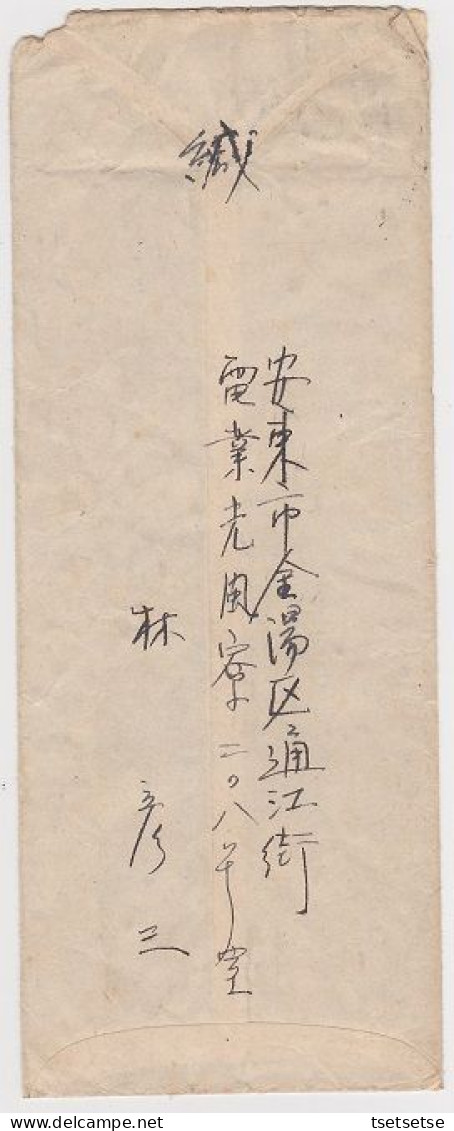 緘
安東市金湯区通江街
電業光風寮二〇八号室
林彦三
tsetsetse